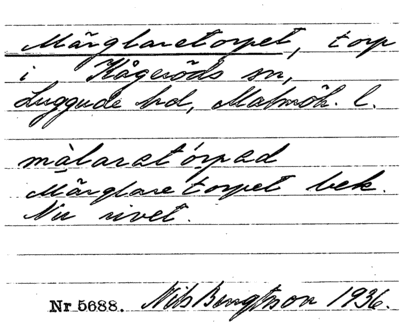 Märglaretorpet, torp
i Kågeröds sn,
Luggude hd, Malmöh. l.
màlaratórpad
Märglaretorpet bek.
Nu rivet.
Nr 5688. Nils Bengtsson 1936.